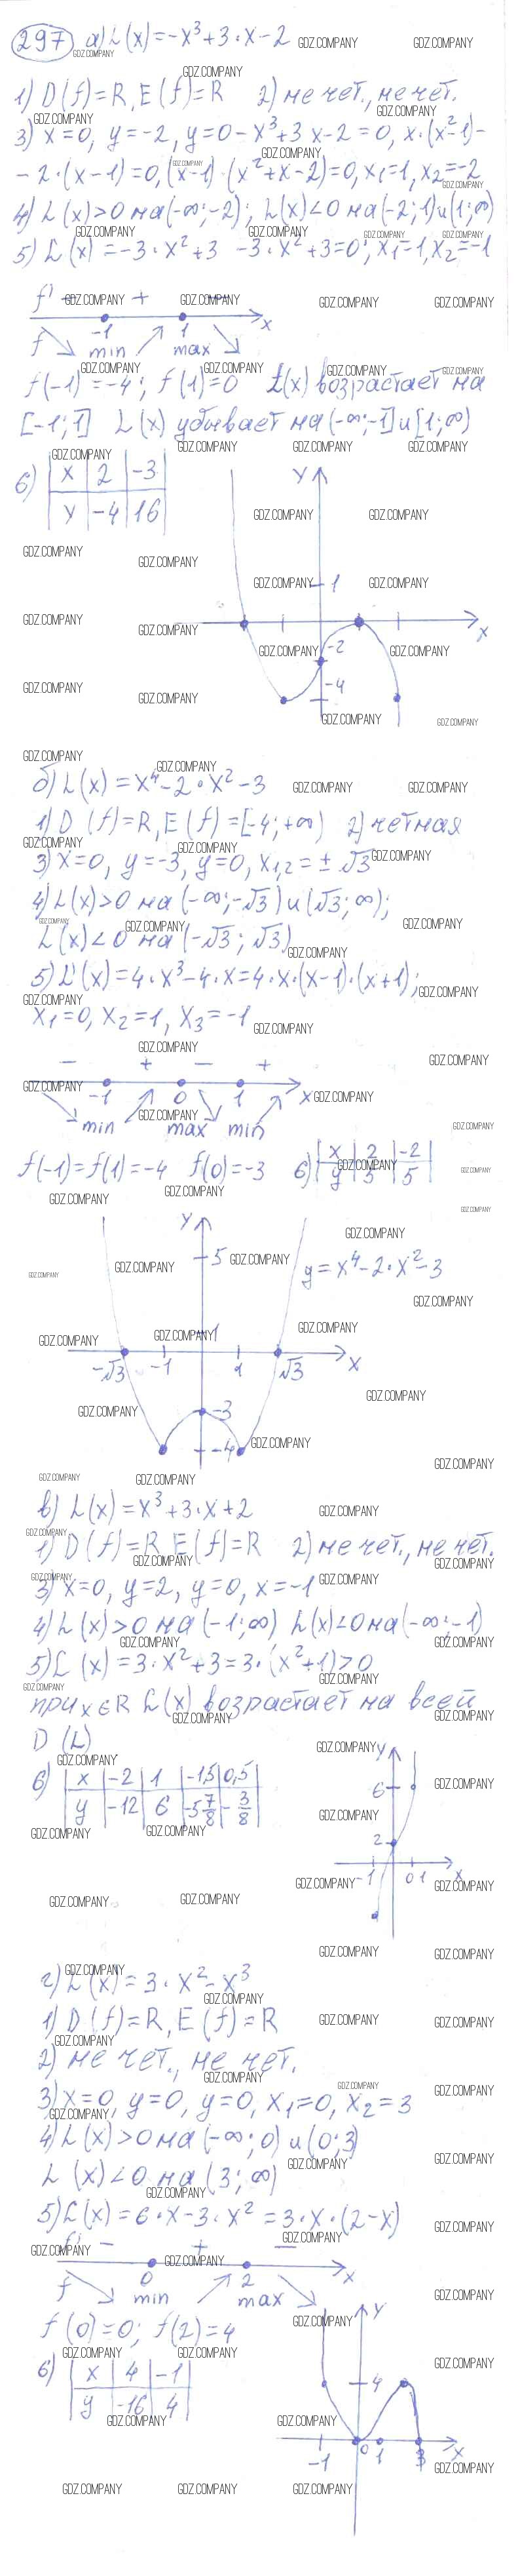 297 а) f(x)=-x³+3·x-2
1) D(f)=R, E(f)=R 2) не чет., не чет.
3) x=0, y=-2, y=0 -x³+3x-2=0, x·(x²-1)-
-2·(x-1)=0, (x-1)·(x²+x-2)=0, x₁=1, x₂=-2
4) f(x)>0 на (-∞;-2); f(x)<0 на (-2;1) и (1;∞)
5) f'(x)=-3·x²+3 -3·x²+3=0; x₁=1, x₂=-1
f' - + -
-1 1 x
f min max
f(-1)=-4; f(1)=0 f(x) возрастает на
[-1;1] f(x) убывает на (-∞;-1] и [1;∞)
6) x 2 -3
y -4 16
y
1
x
-2
-4
б) f(x)=x⁴-2·x²-3
1) D(f)=R, E(f)=[-4;+∞) 2) четная
3) x=0, y=-3, y=0, x₁,₂=±√3
4) f(x)>0 на (-∞;-√3) и (√3;∞);
f(x)<0 на (-√3;√3)
5) f'(x)=4·x³-4·x=4·x·(x-1)·(x+1);
x₁=0, x₂=1, x₃=-1
- + - +
-1 0 1 x
min max min
f(-1)=f(1)=-4 f(0)=-3 6) x 2 -2
y 5 5
y
5
y=x⁴-2·x²-3
1
-√3 -1 1 √3 x
-3
-4
в) f(x)=x³+3·x+2
1) D(f)=R, E(f)=R 2) не чет., не чет.
3) x=0, y=2, y=0, x=-1
4) f(x)>0 на (-1;∞) f(x)<0 на (-∞;-1)
5) f'(x)=3·x²+3=3·(x²+1)>0
при x∈R f(x) возрастает на всей
D(f)
6) x -2 1 -1,5 0,5
y -12 6 -5 7/8 -3/8
y
6
2
-1 0 1 x
г) f(x)=3·x²-x³
1) D(f)=R, E(f)=R
2) не чет., не чет.
3) x=0, y=0, y=0, x₁=0, x₂=3
4) f(x)>0 на (-∞;0) и (0;3)
f(x)<0 на (3;∞)
5) f'(x)=6·x-3·x²=3·x·(2-x)
f' - + -
0 2 x
f min max
f(0)=0; f(2)=4
6) x 4 -1
y -16 4
y
4
-1 0 1 3 x
GDZ.COMPANY